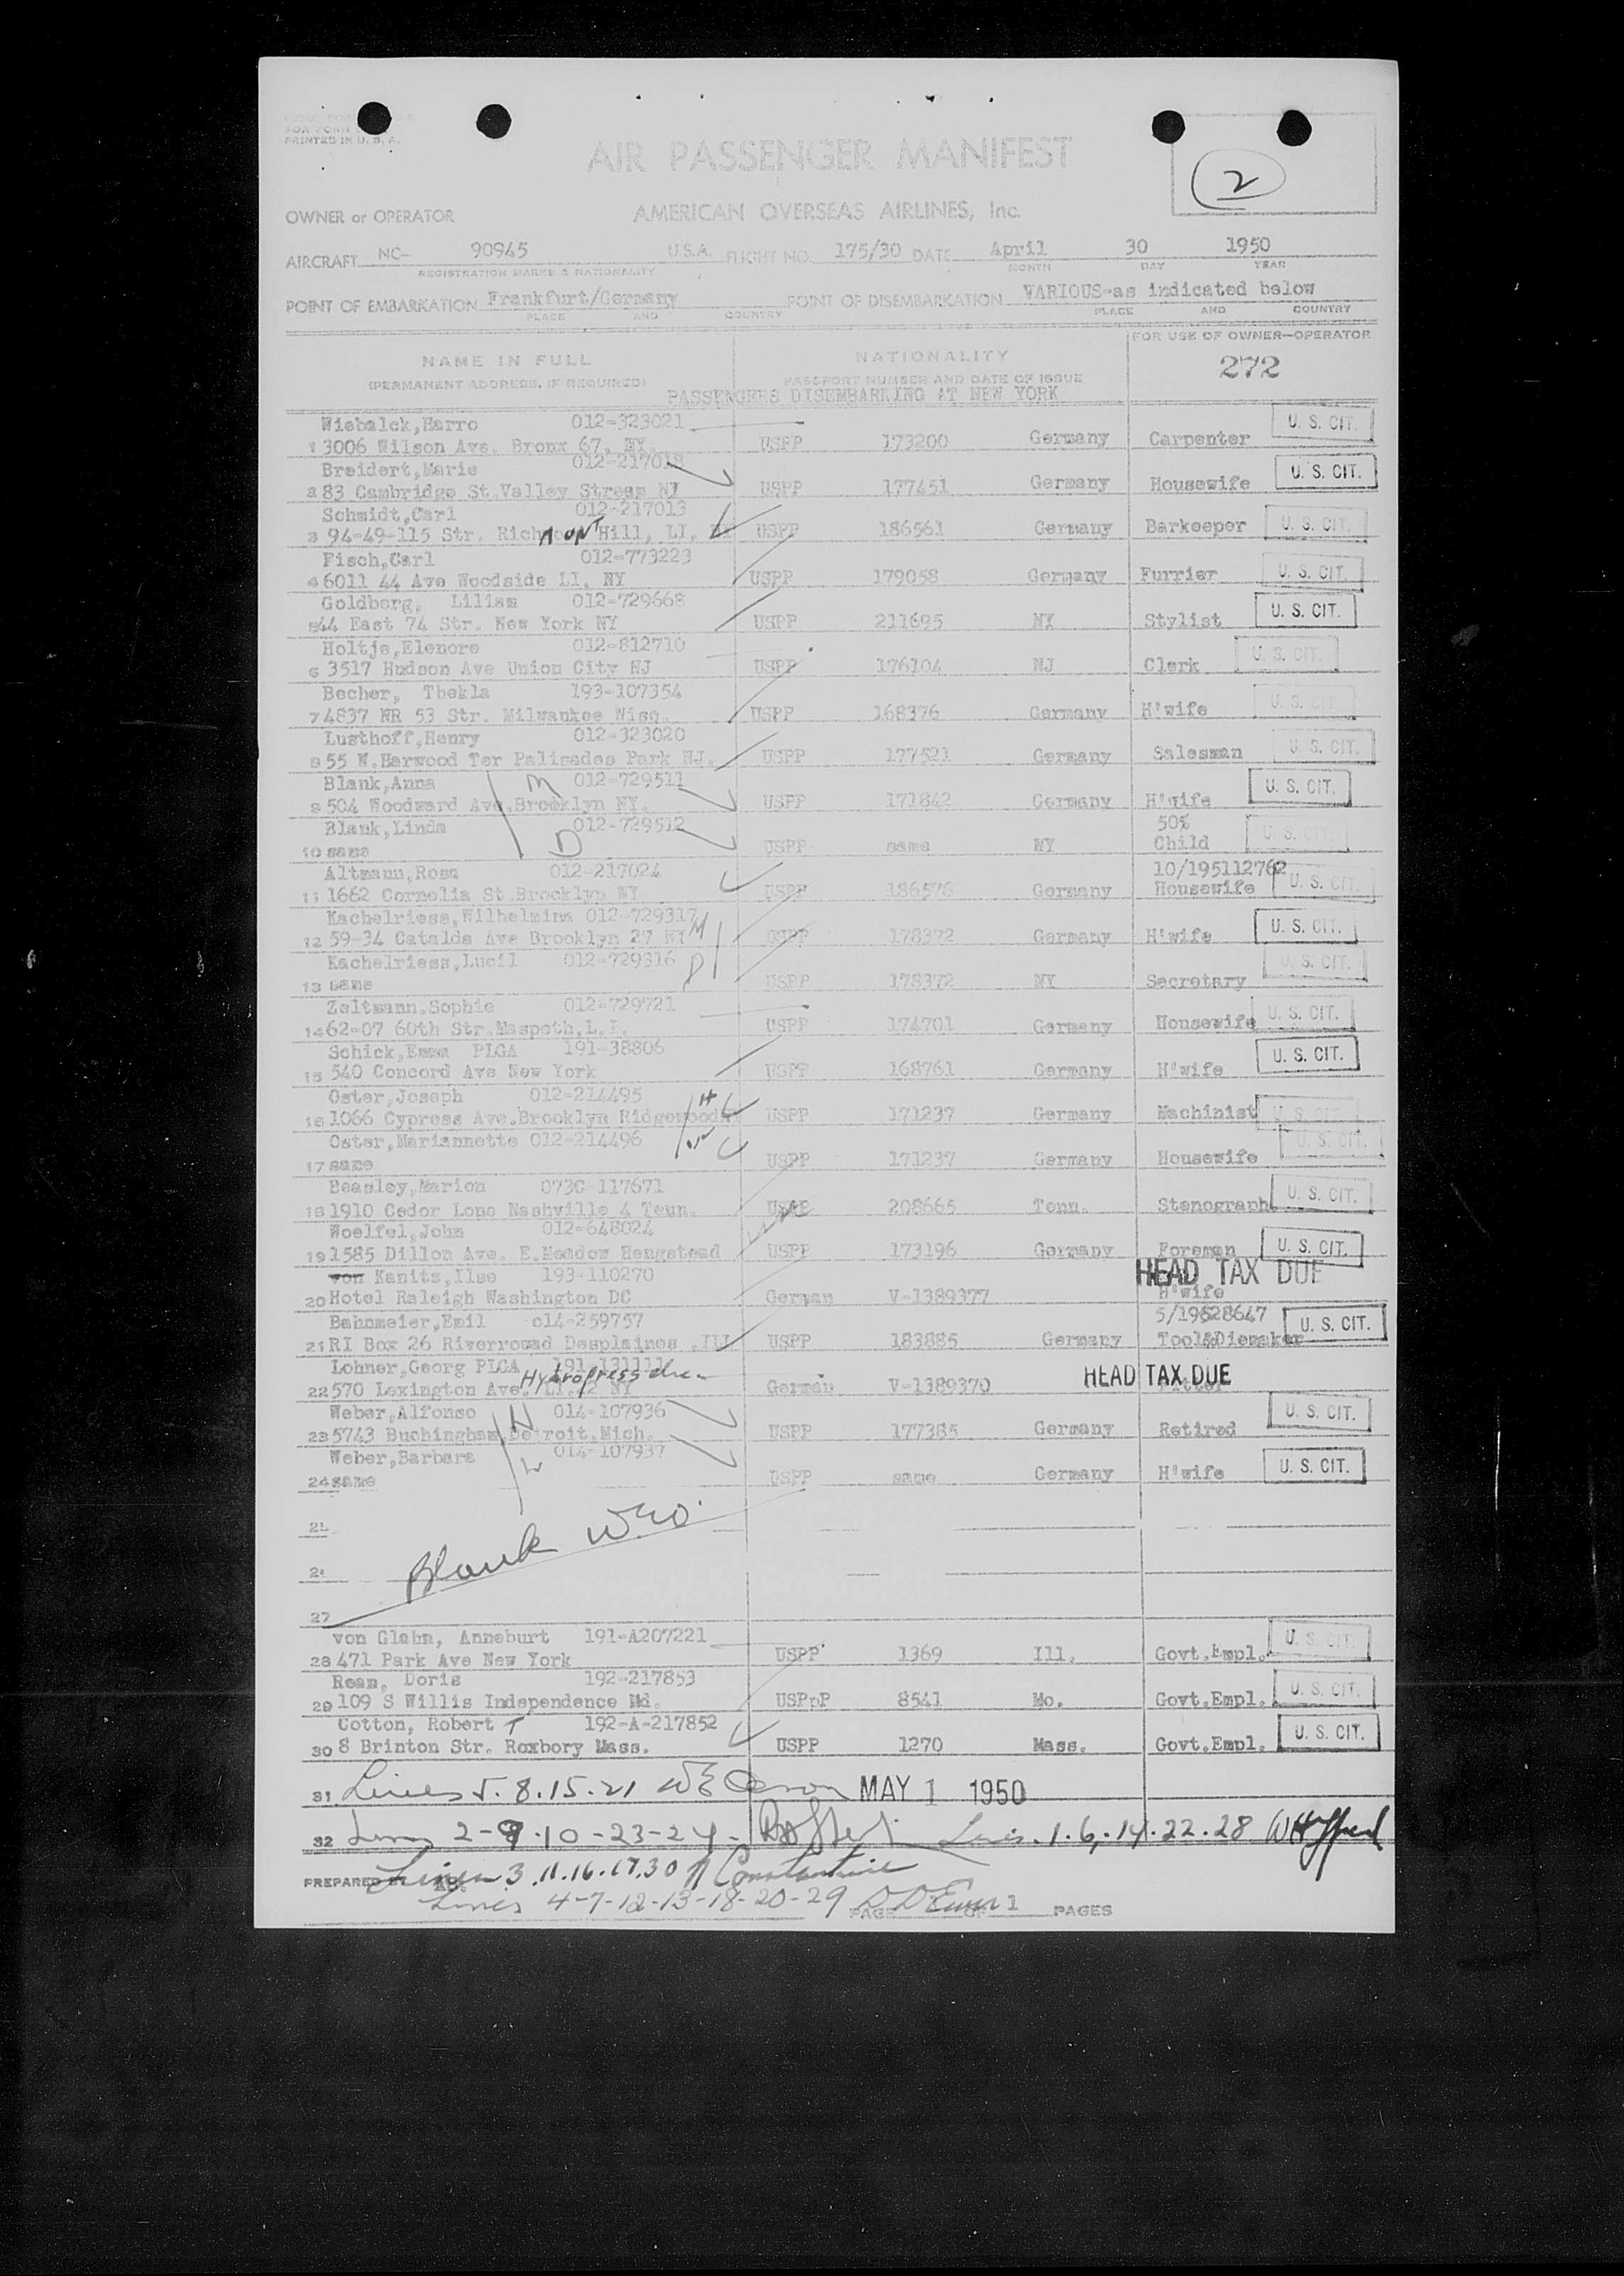 AOA FORM
PRINTED IN U. S. A.
AIR PASSENGER MANIFEST
2
OWNER or OPERATOR AMERICAN OVERSEAS AIRLINES, Inc.
AIRCRAFT NC- 90945 U.S.A. FLIGHT NO. 175/30 DATE April 30 1950
REGISTRATION MARKS & NATIONALITY MONTH DAY YEAR
POINT OF EMBARKATION Frankfurt/Germany POINT OF DISEMBARKATION VARIOUS-as indicated below
PLACE AND COUNTRY PLACE AND COUNTRY
FOR USE OF OWNER—OPERATOR
NAME IN FULL NATIONALITY 272
(PERMANENT ADDRESS, IF REQUIRED) PASSPORT NUMBER AND DATE OF ISSUE
PASSENGERS DISEMBARKING AT NEW YORK
Wiebalck,Harro 012-323021 U. S. CIT.
1 3006 Wilson Ave. Bronx 67, NY. USPP 173200 Germany Carpenter
Breidert,Marie 012-217018 U. S. CIT.
2 83 Cambridge St.Valley Stream NJ USPP 177451 Germany Housewife
Schmidt,Carl 012-217013
3 94-49-115 Str. Richmond Hill, LI, USPP 186561 Germany Barkeeper U. S. CIT.
Fisch,Carl 012-773223
4 6011 44 Ave Woodside LI. NY USPP 179058 Germany Furrier U. S. CIT.
Goldberg, Lilian 012-729668 U. S. CIT.
5 44 East 74 Str. New York NY USPP 211695 NY Stylist
Holtje,Elenore 012-812710 U. S. CIT.
6 3517 Hudson Ave Union City NJ USPP 176104 NJ Clerk
Becher, Thekla 193-107354 U. S. CIT
7 4837 NR 53 Str. Milwaukee Wisc. USPP 168376 Germany H'wife
Lusthoff,Henry 012-323020 U. S. CIT.
8 55 W.Harwood Ter Palisades Park NJ. USPP 177521 Germany Salesman
Blank,Anna M 012-729511 U. S. CIT.
9 504 Woodward Ave.Brooklyn NY. USPP 171842 Germany H'wife
Blank,Linda 012-729512 50% U. S. CIT.
10 same D USPP same NY Child
Altmann,Rosa 012-217024 10/195112762
11 1662 Cornelia St.Brooklyn NY USPP 186576 Germany Housewife U. S. CIT.
Kachelriess,Wilhelmina 012-729317 U. S. CIT.
12 59-34 Catalda Ave Brooklyn 27 NY M USPP 178372 Germany H'wife
Kachelriess,Lucil 012-729316 D U. S. CIT.
13 same USPP 178372 NY Secretary
Zeltmann.Sophie 012-729721 U. S. CIT.
14 62-07 60th Str.Maspeth,L.I. USPP 174701 Germany Housewife
Schick,Emma PLGA 191-38806 U. S. CIT.
15 540 Concord Ave New York USPP 168761 Germany H'wife
Oster,Joseph 012-214495 H
16 1066 Cypress Ave.Brooklyn Ridgewood USPP 171237 Germany Machinist U. S. CIT
Oster,Mariannette 012-214496 W U. S. CIT.
17 same USPP 171237 Germany Housewife
Beasley,Marion 073C-117671 U. S. CIT.
18 1910 Cedor Lone Nashville 4 Tenn. USPP 208665 Tenn. Stenograph.
Woelfel,John 012-648024
19 1585 Dillon Ave. E.Meadow Hengstead USPP 173196 Germany Foreman U. S. CIT.
von Kanitz,Ilse 193-110270 HEAD TAX DUE
20 Hotel Raleigh Washington DC German V-1389377 H'wife
Bahnmeier,Emil 014-259757 5/19528647 U. S. CIT.
21 RI Box 26 Riverrouad Desplaines .Ill USPP 183885 Germany Tool&Diemaker
Lohner,Georg PLGA HEAD TAX DUE
22 570 Lexington Ave. NY German V-1389370
Weber,Alfonso H 014-107936 U. S. CIT.
23 5743 Buchingham Detroit.Mich. USPP 177385 Germany Retired
Weber,Barbara W 014-107937
24 same USPP same Germany H'wife U. S. CIT.
Blank
27
von Glahn, Anneburt 191-A207221 U. S. CIT.
28 471 Park Ave New York USPP 1369 Ill. Govt.Empl.
Ream, Doris 192-217853 U. S. CIT.
29 109 S Willis Independence Md. USPpP 8541 Mo. Govt.Empl.
Cotton, Robert T 192-A-217852 U. S. CIT.
30 8 Brinton Str. Roxbory Mass. USPP 1270 Mass. Govt.Empl.
31 Lines 5.8.15.21 MAY 1 1950
32 Lines 2-9-10-23-24- Lines.1.6.14.22.28
PREPARED Lines 3.11.16.17.30 Constantine
Lines 4-7-12-13-18-20-29
PAGE OF 1 PAGES